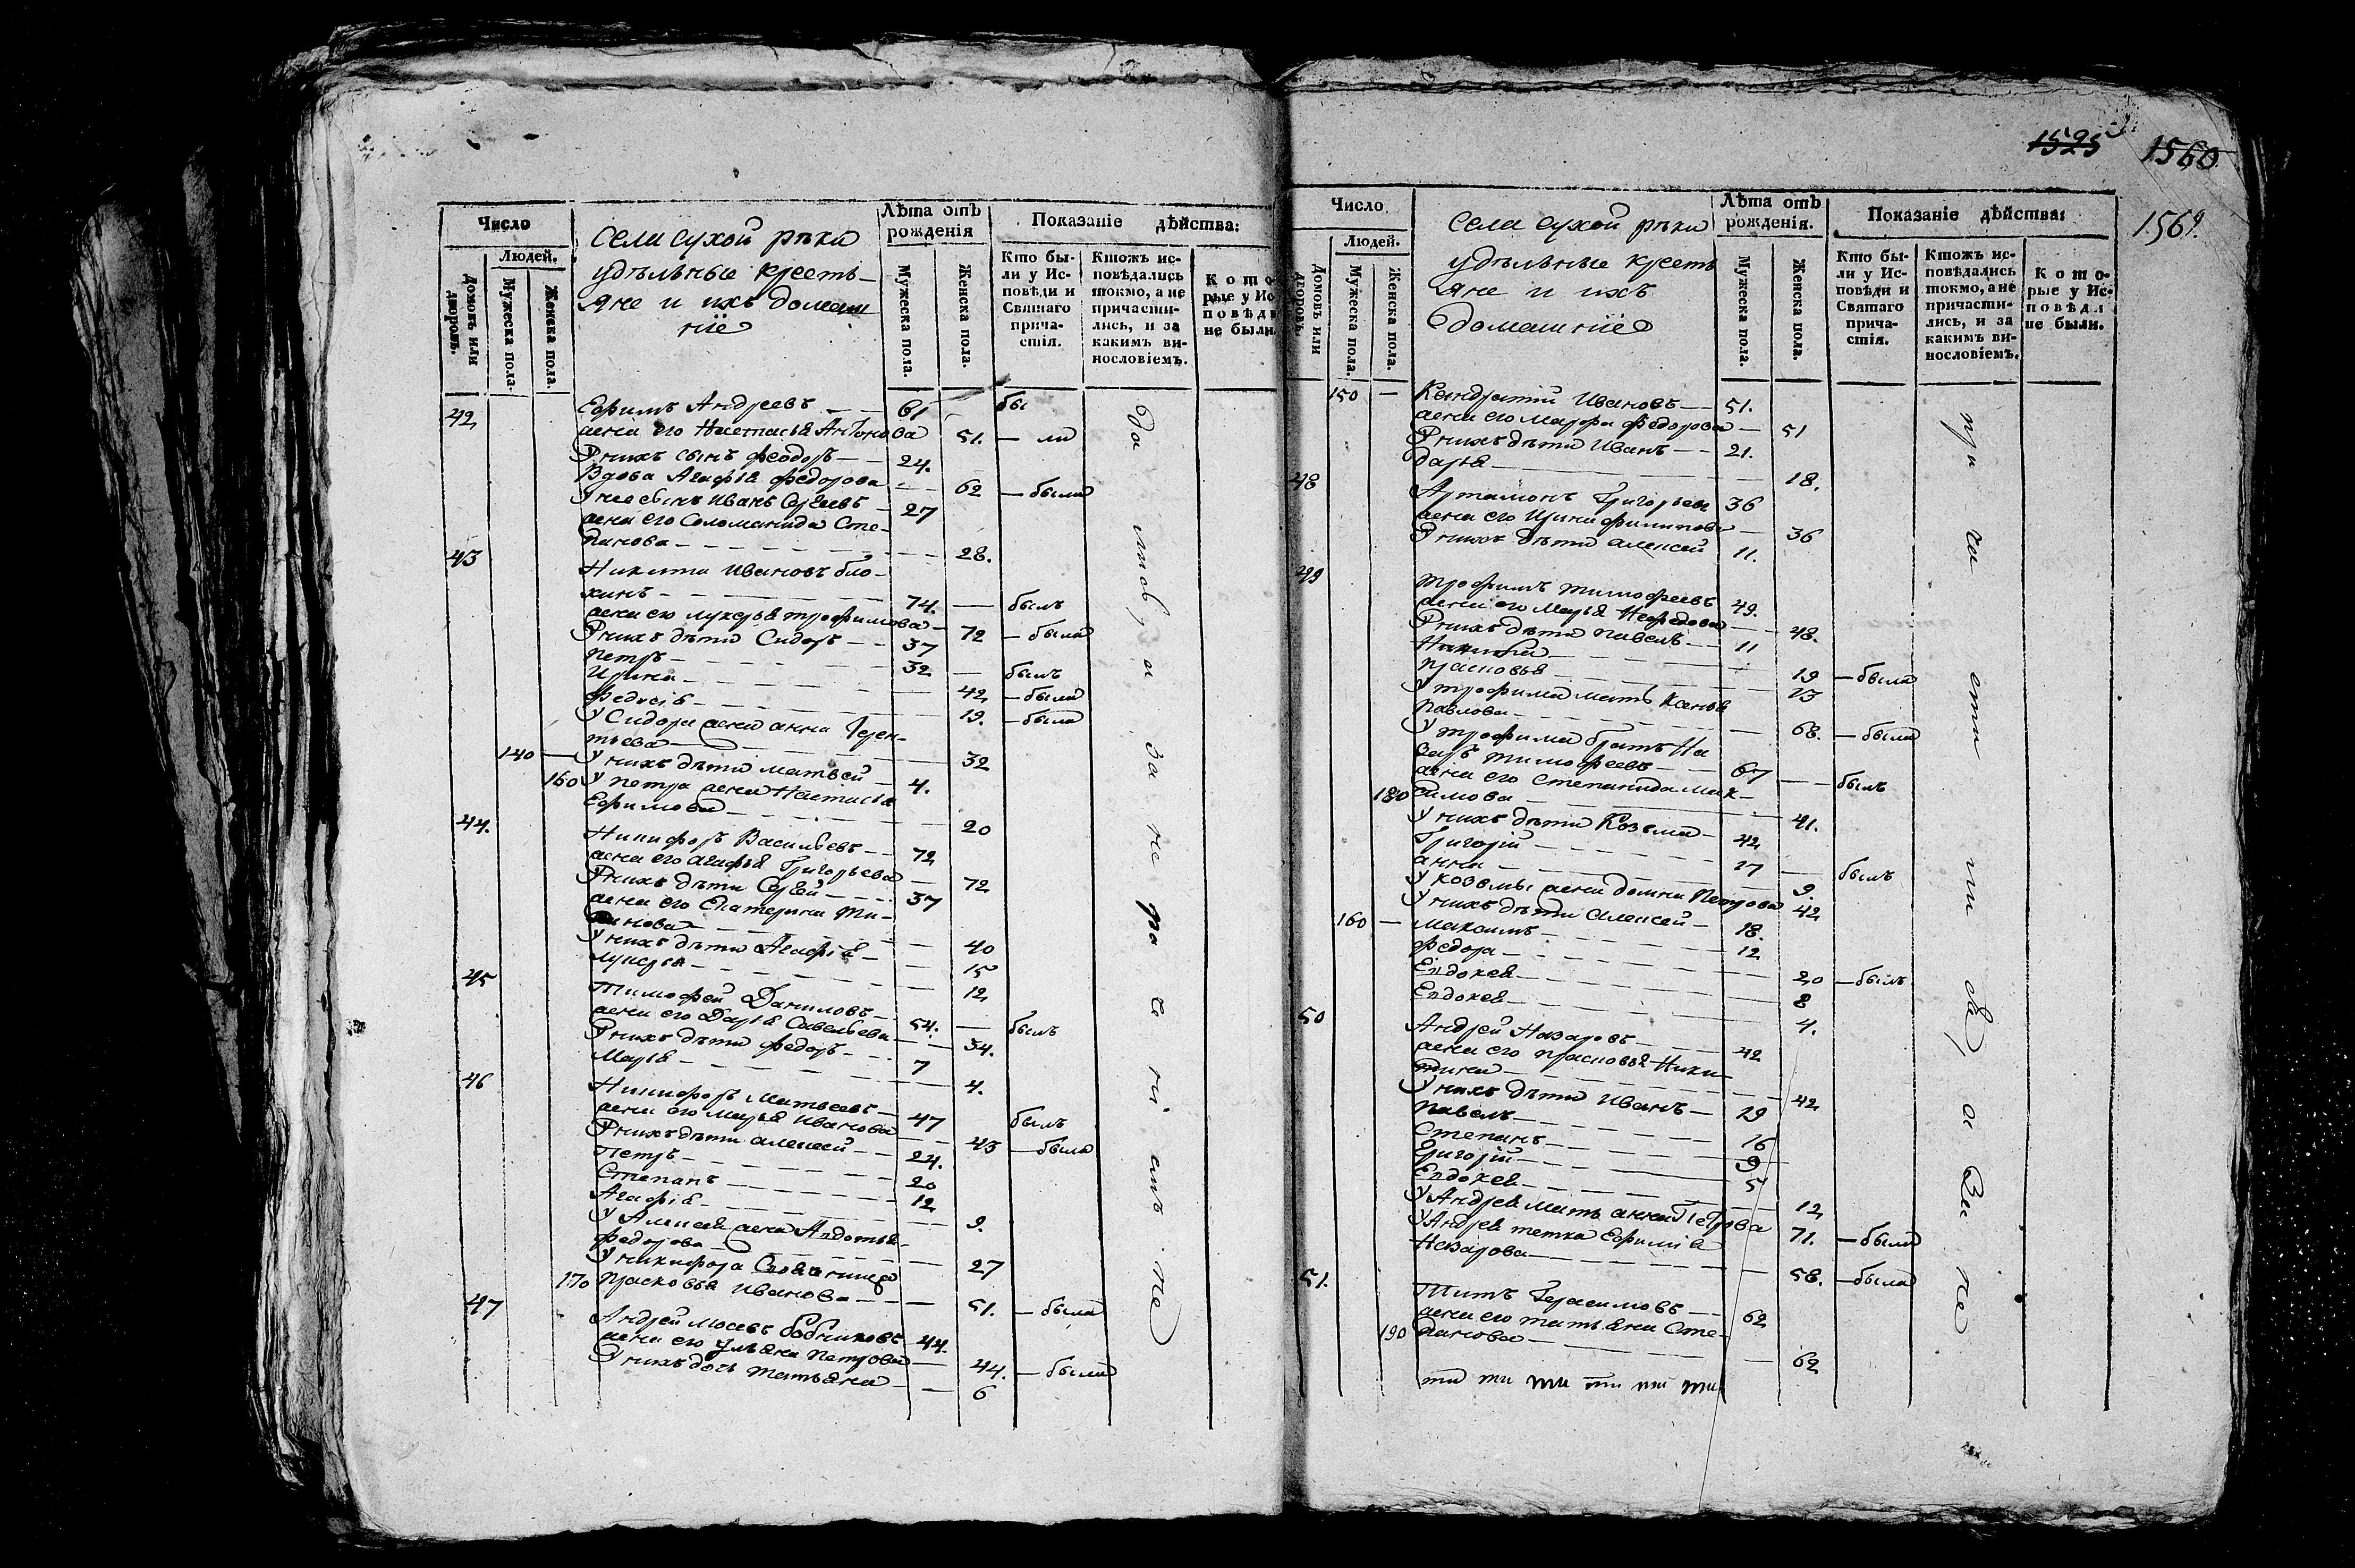 Число
Людей.
Домовъ или дворовъ.
Мужеска пола.
Женска пола.
села сухой рѣки
удѣльные кресть-
яне и ихъ домаш
ніе
Лѣта отъ рожденія
Мужеска пола.
Женска пола.
Показаніе дѣйства:
Кто бы-
ли у Ис-
повѣди и
Святаго
прича-
стія.
Ктожъ ис-
повѣдались
токмо, а не
причасти-
лись, и за
какимъ ви-
нословіемъ.
Кото-
рые у Ис
повѣди
не были.
42 Ефимъ Андреевъ 61 бы
жена его Настасья Антонова 51. — ли
У нихъ сынъ Феодоръ 24.
Вдова Агафья Федорова 62 — была
У нее сынъ Иванъ Сергеевъ 27
жена его Соломанида Сте-
панова 28.
43 Никита Ивановъ
74. — былъ
жена его Лукерья Трофимова 72 — была
У нихъ дѣти Сидоръ 37
Петръ 32 — былъ
Ирина 42 — была
19. — была
У Сидора жена Анна Терен-
тьева 32
140 — У нихъ дѣти Матвей 4.
160 У Петра жена Настасья
Ефимова 20
44. Никифоръ Васильевъ 72
жена его Агафья Григорьева 72
У нихъ дѣти Сергей 37
жена его Екатерина
40
У нихъ дѣти Агафья 15
Лукерья 12
45 Тимофей Даниловъ 54. — былъ
жена его Дарья Савельева 34.
У нихъ дѣти Федоръ 7
Марья 4.
46 Никифоръ Матвеевъ 47 былъ
жена его Марья Иванова 43 — была
У нихъ дѣти Алексей 24.
Петръ 20
Степанъ 12
Агафья 9.
У Алексея жена Авдотья
Федорова 27
У Никифора
170 Прасковья Иванова 51. — была
47 Андрей 44.
жена его Ульяна Петрова 44. — была
У нихъ дочь Татьяна 6
1525
1560
1561.
Число
Людей.
Домовъ или дворовъ.
Мужеска пола.
Женска пола.
села сухой рѣки
удѣльные кресть
яне и ихъ
домашніе
Лѣта отъ рожденія.
Мужеска пола.
Женска пола.
Показаніе дѣйства:
Кто бы-
ли у Ис-
повѣди и
Святаго
прича-
стія.
Ктожъ ис-
повѣдались
токмо, а не
причасти-
лись, и за
какимъ ви-
нословіемъ.
Кото-
рые у Ис-
повѣди
не были.
150 — Кондратій Ивановъ 51.
жена его Марфа Федорова 51
У нихъ дѣти Иванъ 21.
Дарья 18.
48 Артамонъ Григорьевъ 36
жена его Ирина Филипова 36
У нихъ дѣти Алексей 11.
49 Трофимъ Тимофеевъ 49.
жена его Марья 48.
У нихъ дѣти Павелъ 11
19 — была
Прасковья 13
У Трофима мать Ксенья
Павлова 68. — была
У Трофима братъ На
заръ Тимофеевъ 67 — былъ
жена его Степанида Мак-
180 симова 41.
У нихъ дѣти Козьма 42
Григорій 17 — былъ
Анна 9.
У Козьмы жена Домна Петрова 42
У нихъ дѣти Алексей 18.
160 — Максимъ 12
Федора 20 — былъ
Евдокея 8
Евдокея 4.
50 Андрей Назаровъ 42
жена его Прасковья Ники
тина 42
У нихъ дѣти Иванъ 19
Павелъ 16
Степанъ 9
Григорій 5
Евдокея 12
У Андрея мать Анна Петрова 71. — была
У Андрея тетка Ефимія
Назарова 58. — была
51. Титъ Герасимовъ 62
жена его Татьяна Сте-
190 панова 62
ти ти ти ти ти ти